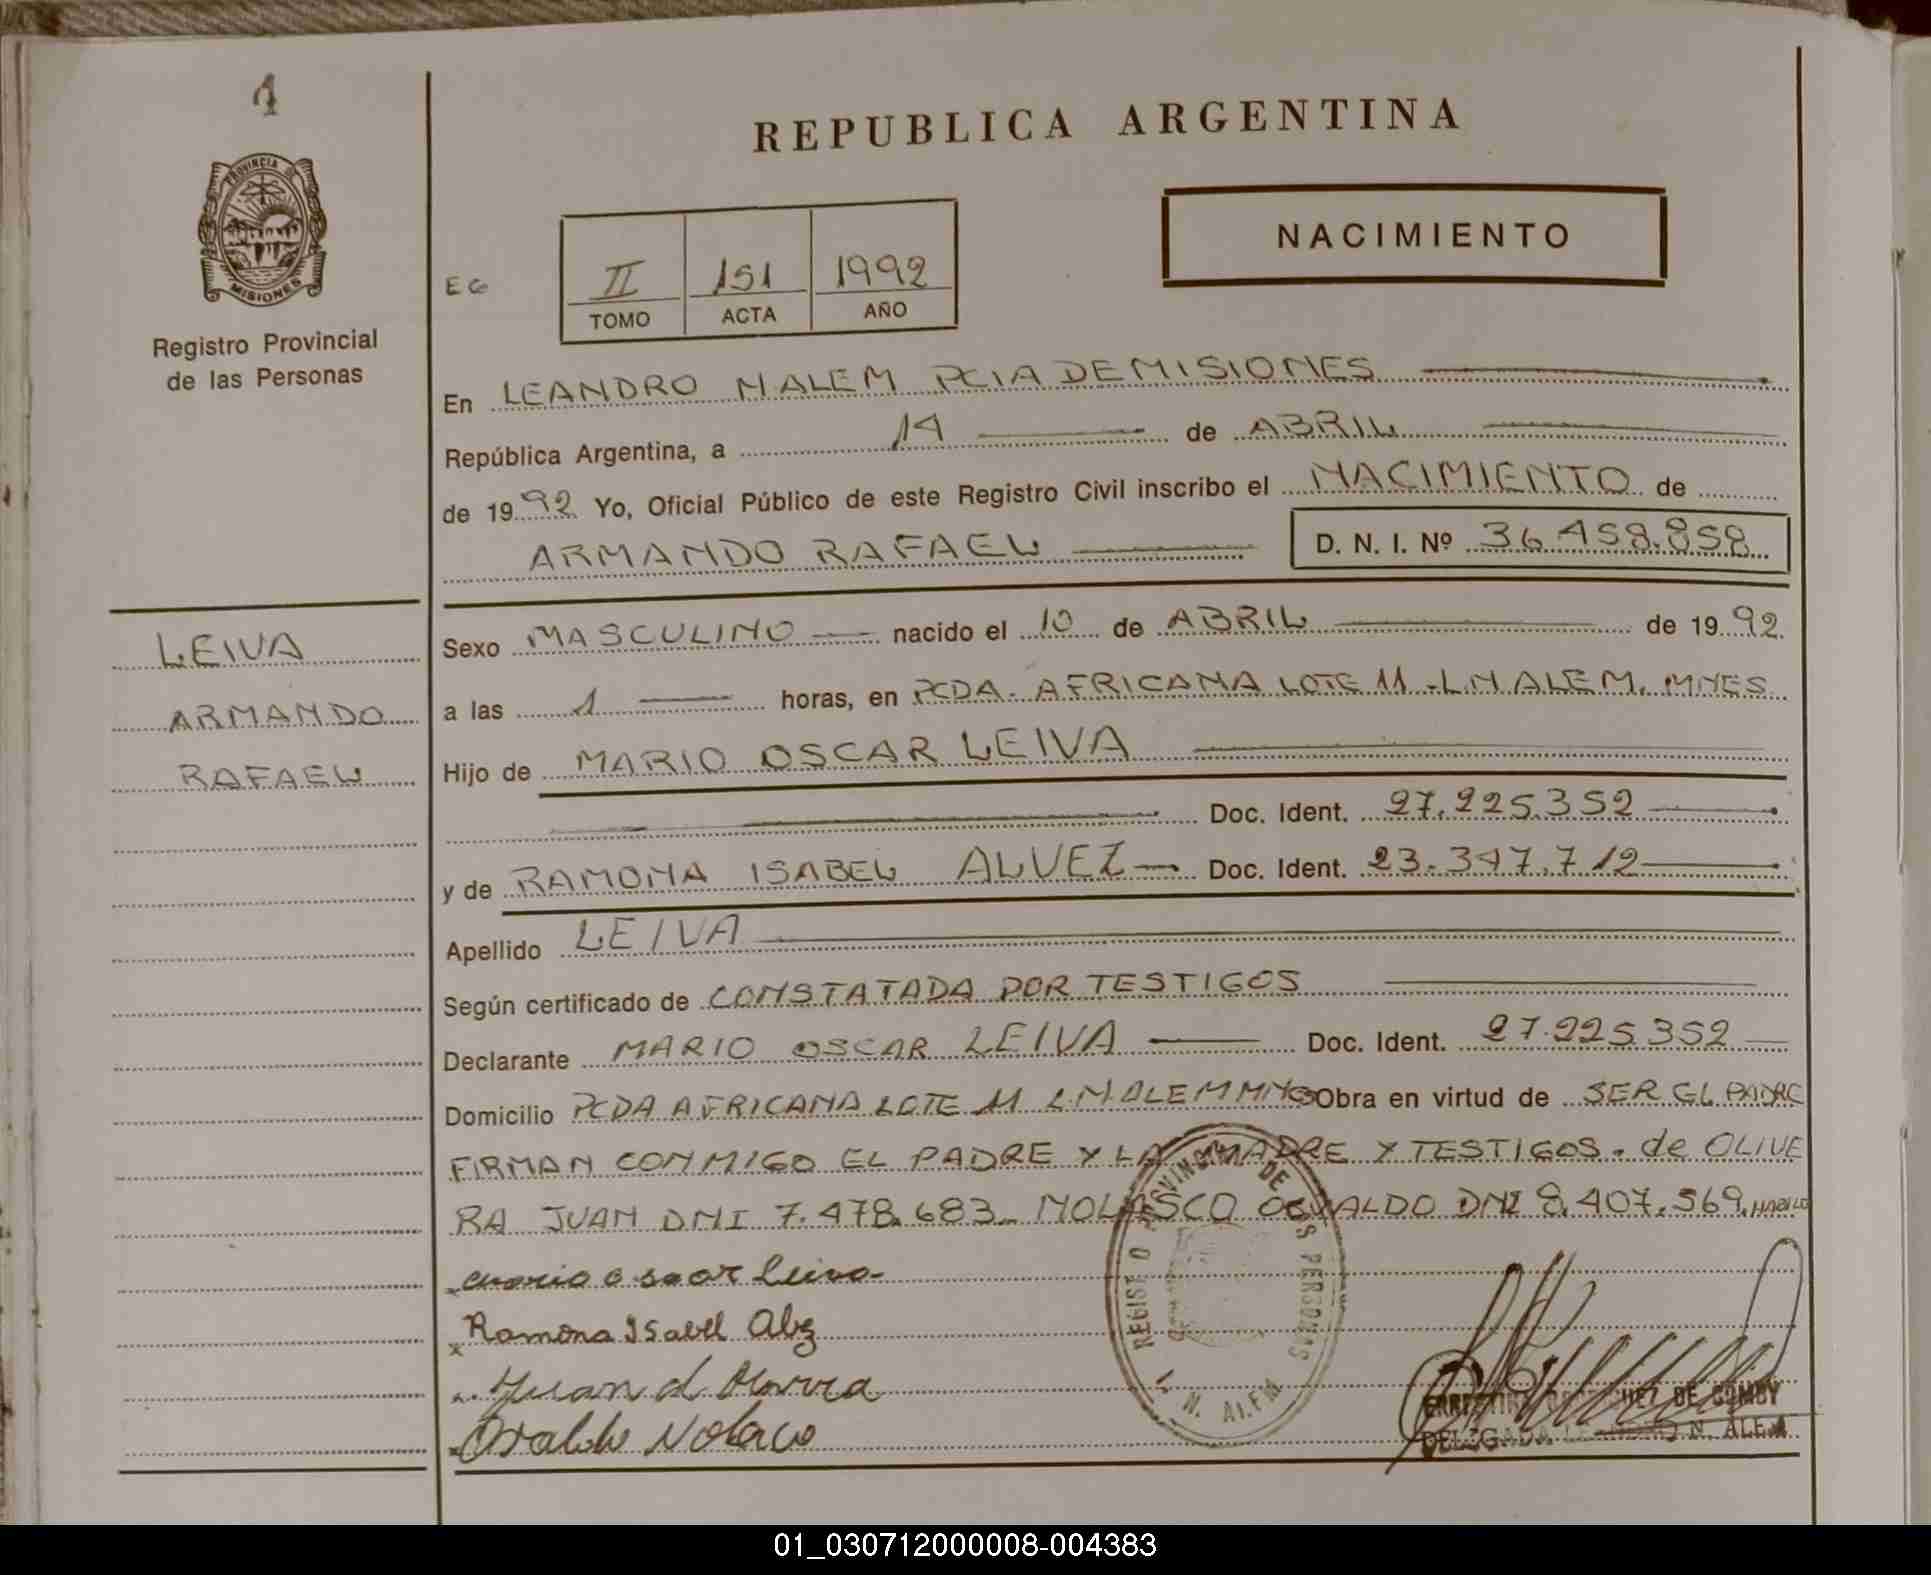 1
REPUBLICA ARGENTINA
PROVINCIA DE
MISIONES
Registro Provincial
de las Personas
NACIMIENTO
EG
II 151 1992
TOMO ACTA AÑO
En LEANDRO N ALEM PCIA DE MISIONES
República Argentina, a 14 de ABRIL
de 1992 Yo, Oficial Público de este Registro Civil inscribo el NACIMIENTO de
ARMANDO RAFAEL D. N. I. Nº 36.458.858
LEIVA
ARMANDO
RAFAEL
Sexo MASCULINO nacido el 10 de ABRIL de 1992
a las 1 horas, en PCDA. AFRICANA LOTE 11 - L N ALEM. MNES
Hijo de MARIO OSCAR LEIVA
Doc. Ident. 27.225.352
y de RAMONA ISABEL ALVEZ Doc. Ident. 23.347.712
Apellido LEIVA
Según certificado de CONSTATADA POR TESTIGOS
Declarante MARIO OSCAR LEIVA Doc. Ident. 27.225.352
Domicilio PCDA AFRICANA LOTE 11 L N ALEM MNES Obra en virtud de SER EL PADRE
FIRMAN CONMIGO EL PADRE Y LA MADRE Y TESTIGOS. de OLIVE
RA JUAN DNI 7.478.683 NOLASCO OSVALDO DNI 8.407.569.
Mario Oscar Leiva
Ramona Isabel Alvz
Juan d
Osvaldo Nolaco
REGISTRO PROVINCIAL DE LAS PERSONAS
L. N. ALEM
DE GOMBY
DELEGADA LEANDRO N. ALEM
01_030712000008-004383